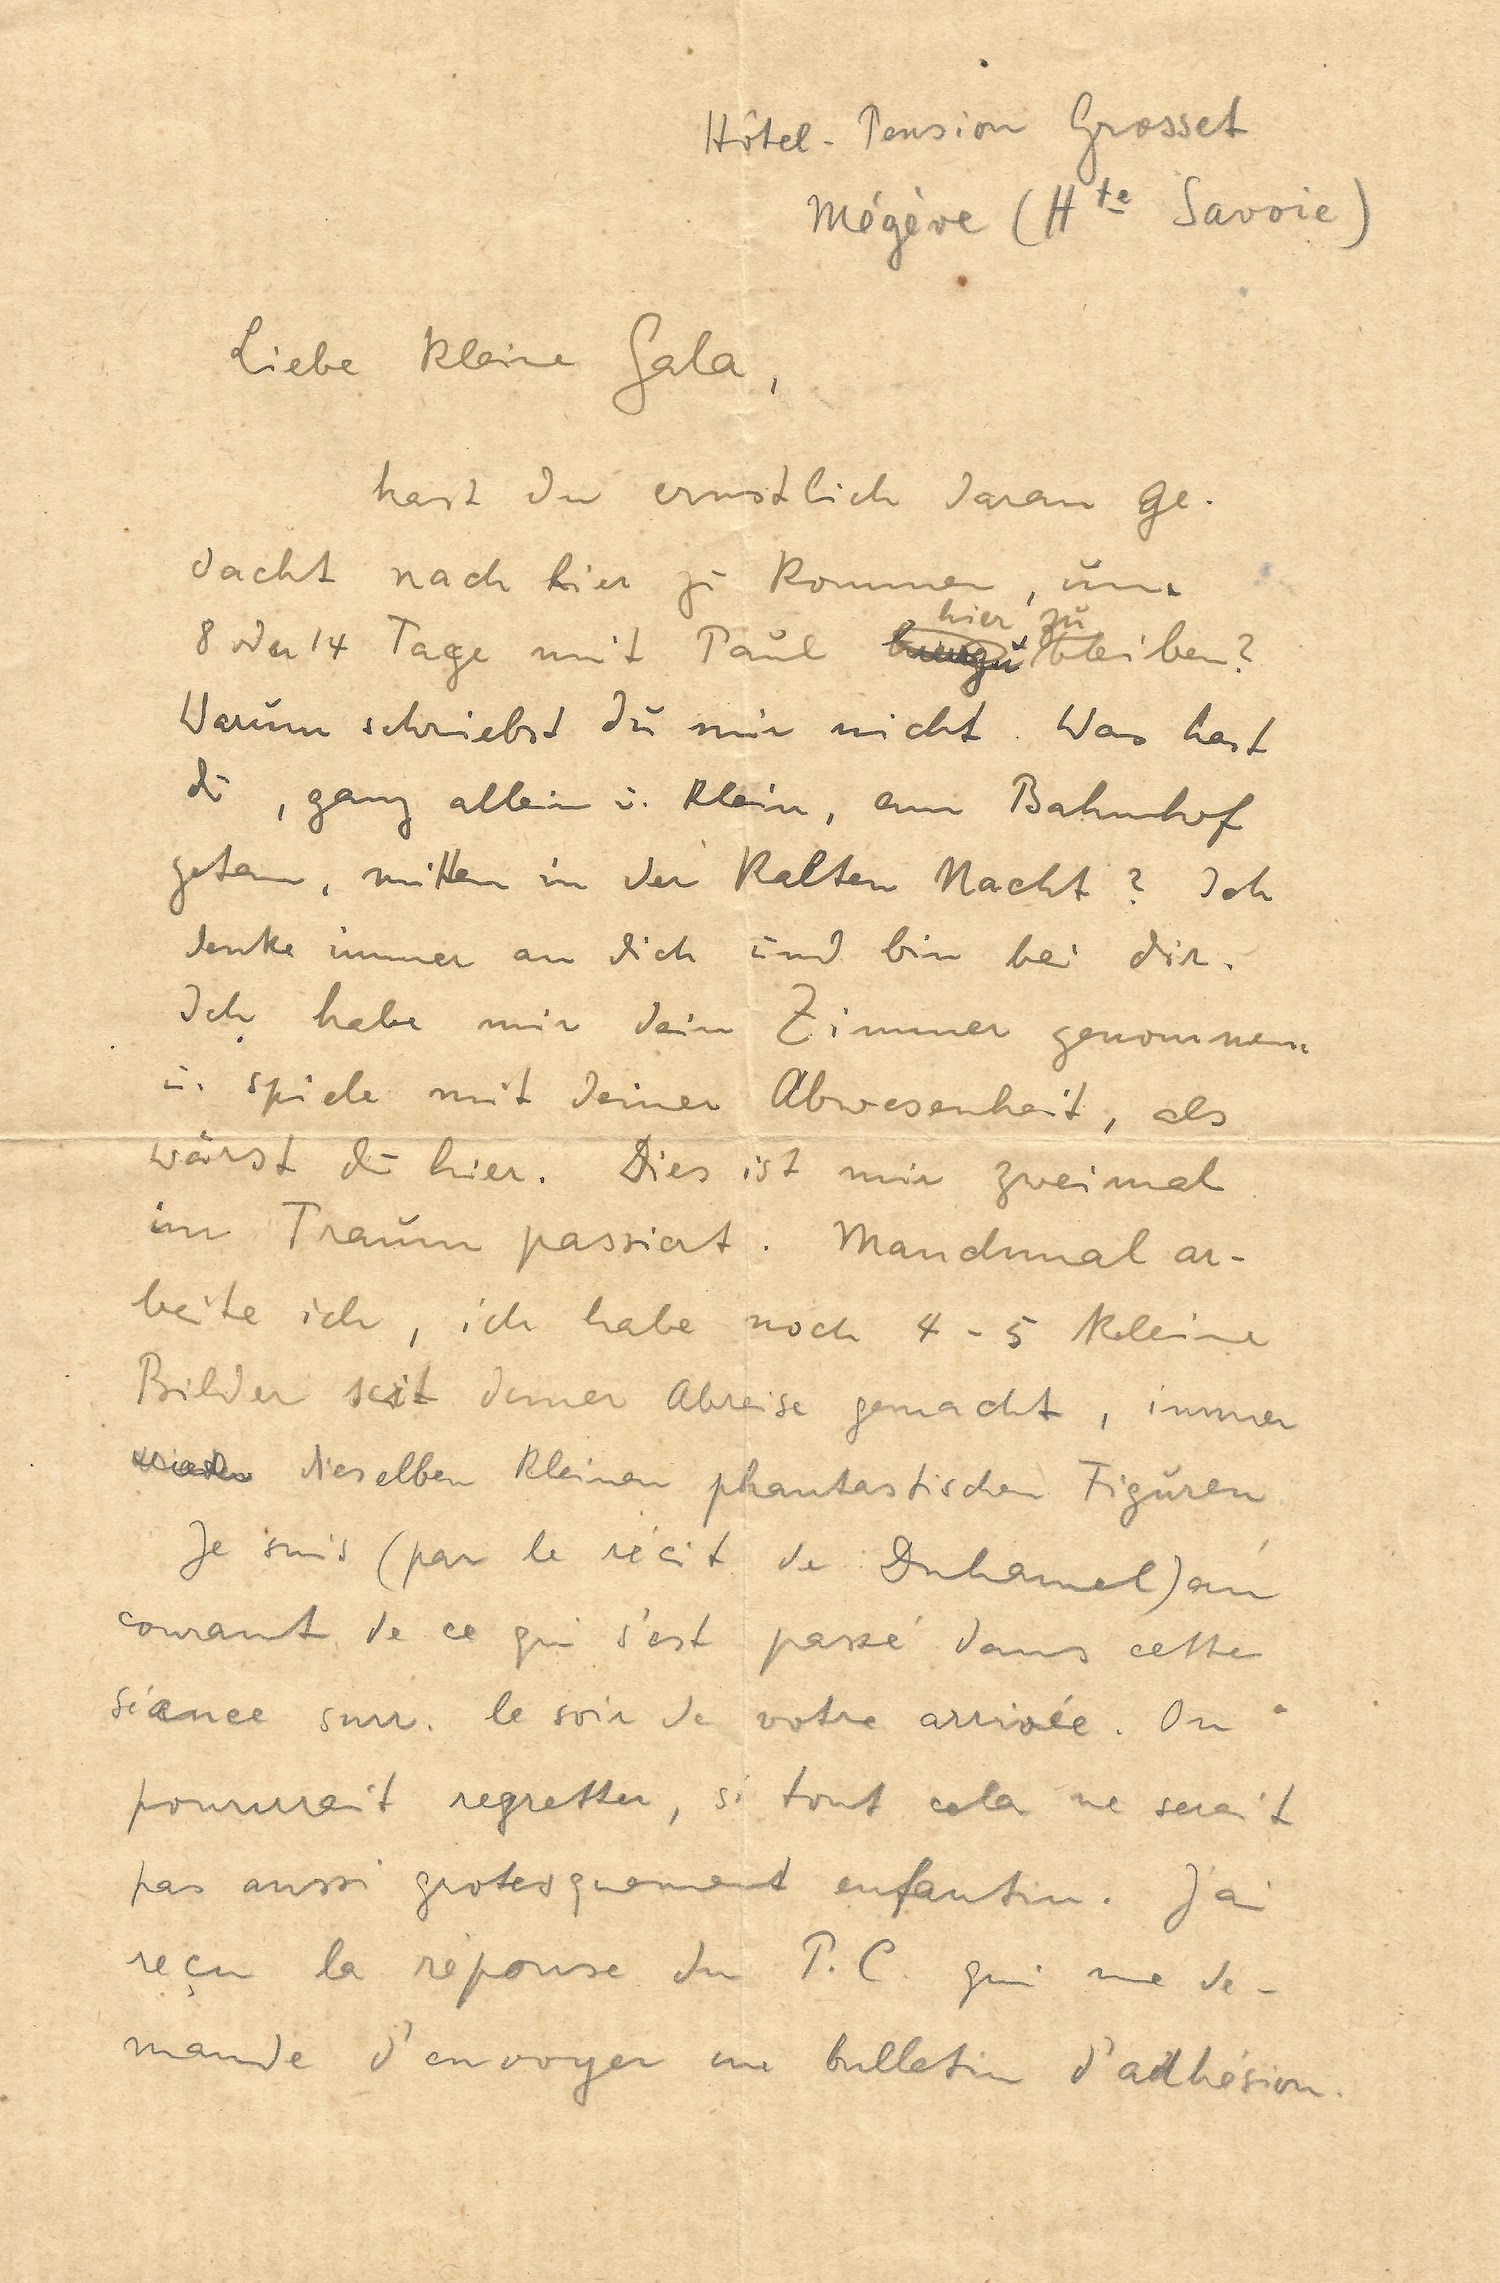 Hôtel-Pension Grosset
Mégève (Hte Savoie)
Liebe kleine Gala,
hast du ernstlich daran ge-
dacht nach hier zu kommen, um
hier zu
8 oder 14 Tage mit Paul bleiben?
Warum schriebst du mir nicht. Was hast
du, ganz allein u. klein, am Bahnhof
getan, mitten in der kalten Nacht? Ich
denke immer an dich und bin bei dir.
Ich habe mir dein Zimmer genommen
u. spiele mit deiner Abwesenheit, als
wärst du hier. Dies ist mir zweimal
im Traum passiert. Manchmal ar-
beite ich, ich habe noch 4-5 kleine
Bilder seit deiner Abreise gemacht, immer
wieder dieselben kleinen phantastischen Figuren
Je suis (par le récit de Duhamel) au
courant de ce qui s'est passé dans cette
séance surr. le soir de votre arrivée. On
pourrrait regretter, si tout cela ne serait
pas aussi grotesquement enfantin. J'ai
reçu la réponse du P.C. qui me de-
mande d'envoyer un bulletin d'adhésion.